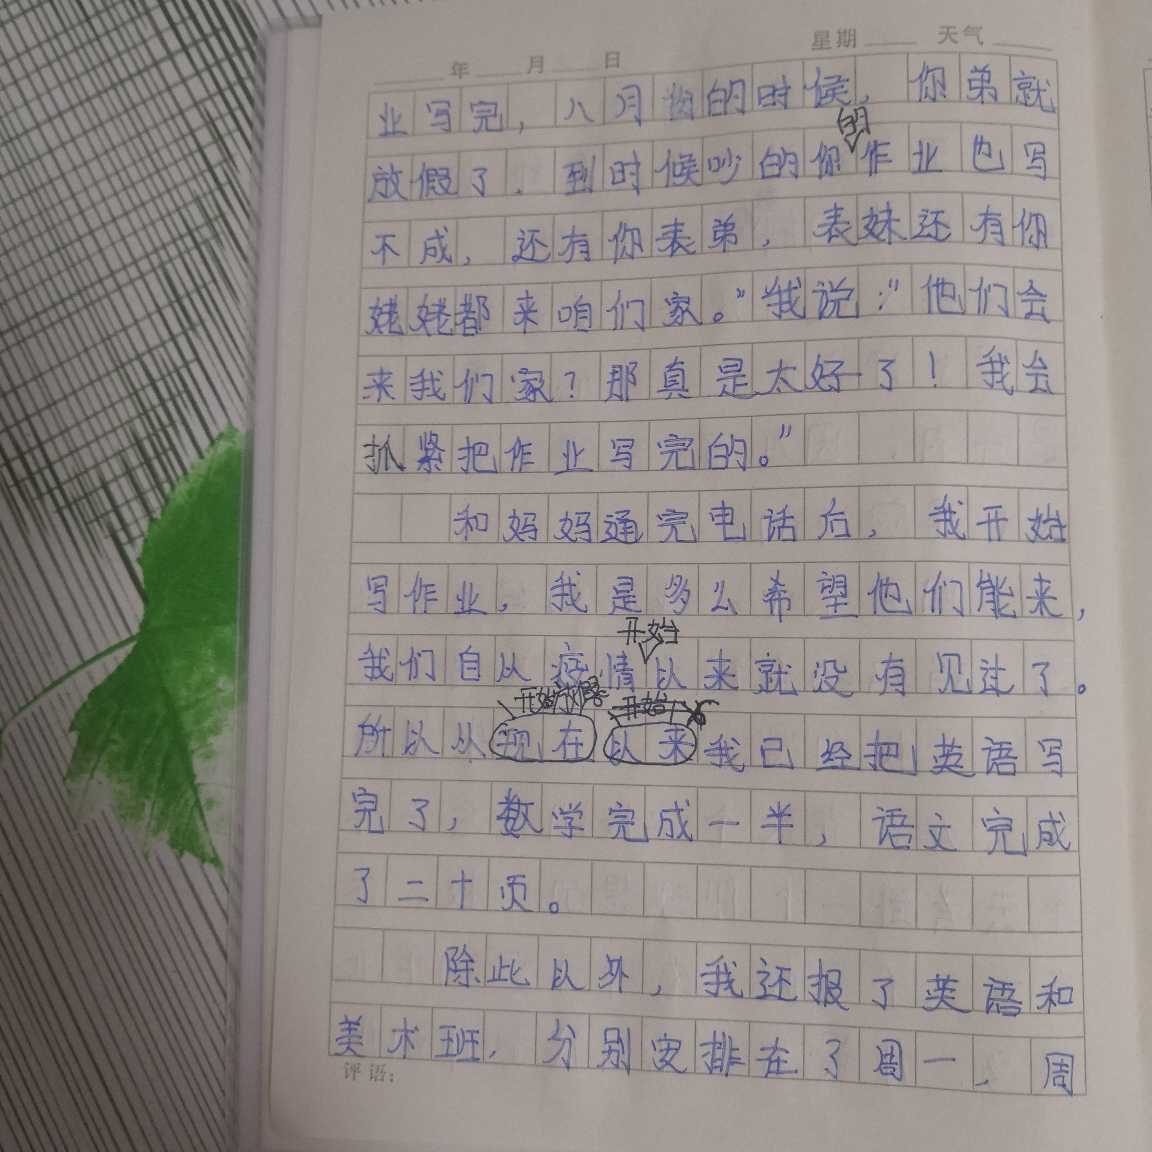 年 月 日 星期 天气
业写完，八月份的时候，你弟就
的
放假了．到时候吵的你作业也写
不成，还有你表弟，表妹还有你
姥姥都来咱们家。”我说：“他们会
来我们家？那真是太好了！我会
抓紧把作业写完的。”
和妈妈通完电话后，我开始
写作业，我是多么希望他们能来，
开始
我们自从疫情以来就没有见过了。
开始放假 开始
所以从现在以来我已经把英语写
完了，数学完成一半，语文完成
了二十页。
除此以外，我还报了英语和
美术班，分别安排在了周一，周
评语：